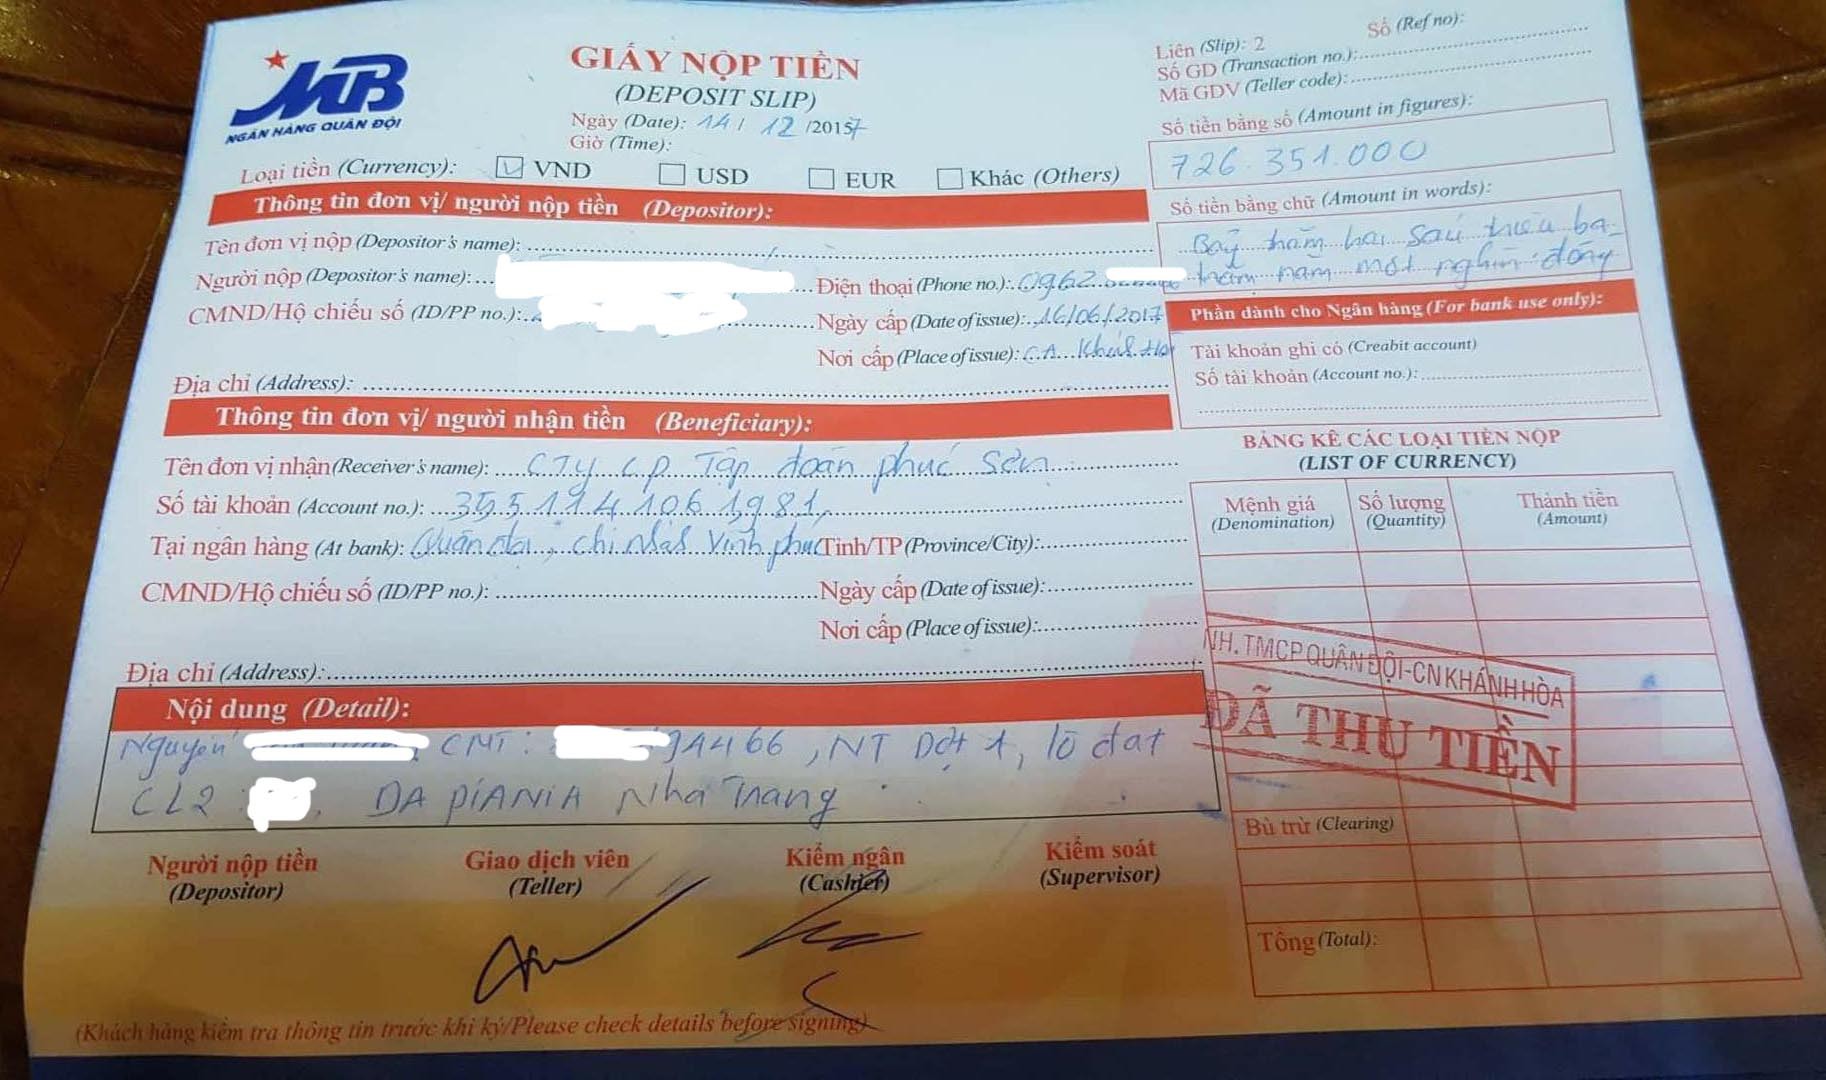 MB
NGÂN HÀNG QUÂN ĐỘI
GIẤY NỘP TIỀN
(DEPOSIT SLIP)
Ngày (Date): 14 / 12 /2017
Giờ (Time):
Liên (Slip): 2
Số (Ref no):
Số GD (Transaction no.):
Mã GDV (Teller code):
Số tiền bằng số (Amount in figures):
726.351.000
Số tiền bằng chữ (Amount in words):
Bảy trăm hai sáu triệu ba
trăm năm một nghìn đồng
Loại tiền (Currency): VND USD EUR Khác (Others)
Thông tin đơn vị/ người nộp tiền (Depositor):
Tên đơn vị nộp (Depositor's name):
Người nộp (Depositor's name): Điện thoại (Phone no.): 0962
CMND/Hộ chiếu số (ID/PP no.): Ngày cấp (Date of issue): 16/06/2017
Nơi cấp (Place of issue): C.A Khánh Hòa
Địa chỉ (Address):
Phần dành cho Ngân hàng (For bank use only):
Tài khoản ghi có (Creabit account)
Số tài khoản (Account no.):
Thông tin đơn vị/ người nhận tiền (Beneficiary):
Tên đơn vị nhận (Receiver's name): CTy CP Tập đoàn phúc Sơn
Số tài khoản (Account no.): 3551141061981
Tại ngân hàng (At bank): Quân đội, chi nhánh Vĩnh phúc Tỉnh/TP (Province/City):
CMND/Hộ chiếu số (ID/PP no.): Ngày cấp (Date of issue):
Nơi cấp (Place of issue):
Địa chỉ (Address):
BẢNG KÊ CÁC LOẠI TIỀN NỘP
(LIST OF CURRENCY)
Mệnh giá Số lượng Thành tiền
(Denomination) (Quantity) (Amount)
NH.TMCP QUÂN ĐỘI-CN KHÁNH HÒA
ĐÃ THU TIỀN
Bù trừ (Clearing)
Tổng (Total):
Nội dung (Detail):
Nguyễn CMT: 94466, NT Đợt 1, lô đất
CL2 DA PIANIA Nha Trang
Người nộp tiền Giao dịch viên Kiểm ngân Kiểm soát
(Depositor) (Teller) (Cashier) (Supervisor)
(Khách hàng kiểm tra thông tin trước khi ký/Please check details before signing)